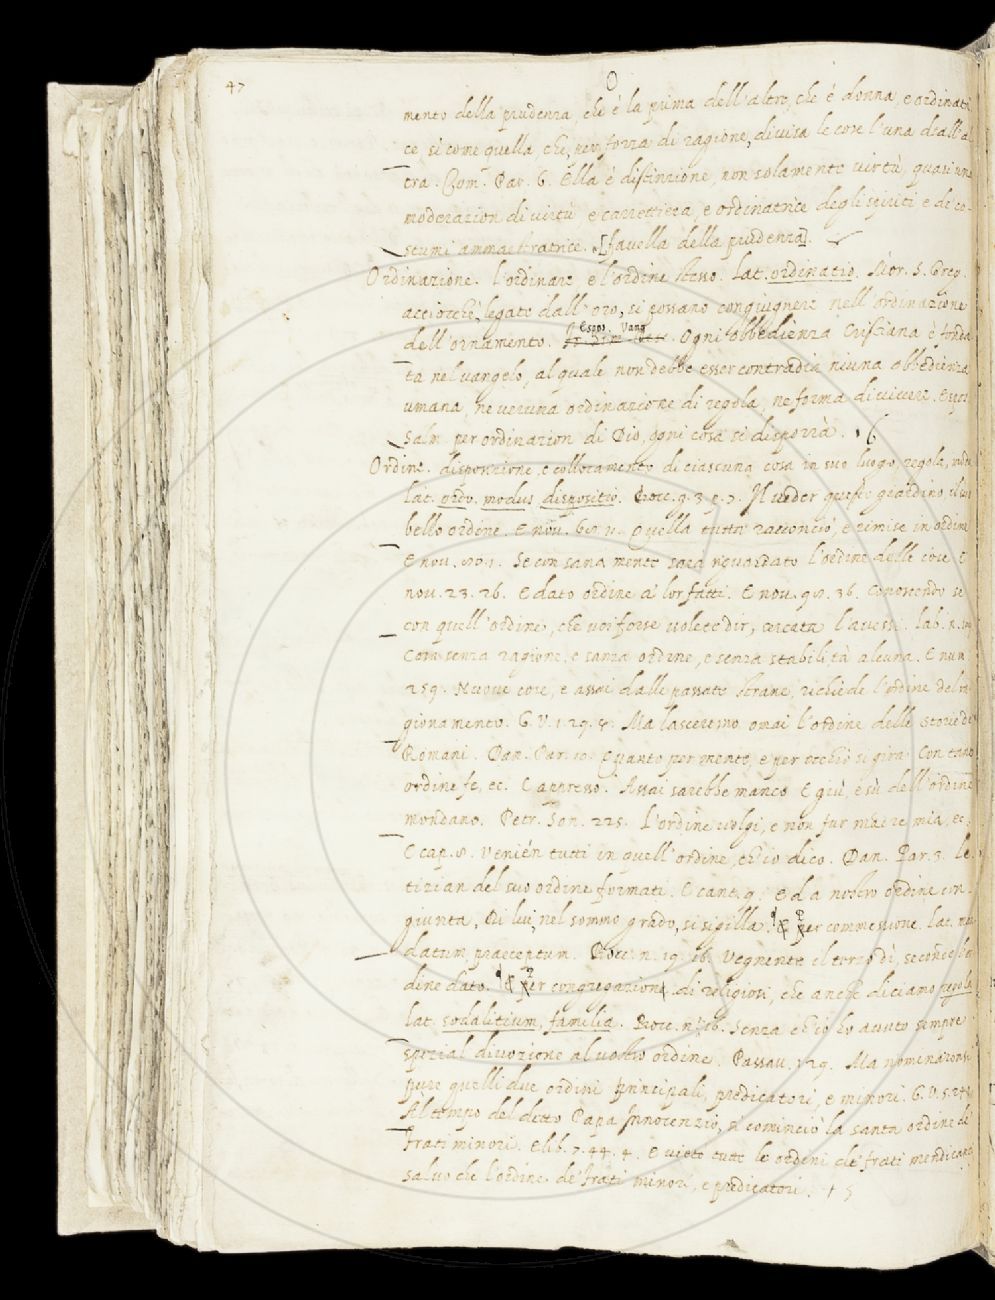 47
O
mento della prudenza, che è la prima dell'altre, che è donna, e ordinatri
ce, sì come quella, che, per forza di ragione, divisa le cose l'una dall'al
tra. Com. Par. 6. Ella è distinzione, non solamente virtù, quasi una
moderazion di virtù, e carrettiera, e ordinatrice degli spiriti e de' co-
stumi ammaestratrice. [favella della prudenza].
Ordinazione. l'ordinare, e l'ordine stesso. Lat. ordinatio. Mor. S. Greg.
acciocchè, legate dall'oro, si possano congiugnere nell'ordinazione
dell'ornamento. Espos. Vang. Ogni obbedienza Cristiana è fonda
ta nel vangelo, al quale non debbe esser contradia niuna obbedienza
umana, ne veruna ordinazione di regola, ne forma di vivere. Espos.
Salm. per ordinazion di Dio, ogni cosa si disporrà. 6
Ordine. disposizione, e collocamento di ciascuna cosa in suo luogo, regola, modo
lat. ordo, modus, dispositio. Bocc. g. 3. p. 7. Il veder questo giardino, il suo
bello ordine. E nov. 60. Quella tutta racconciò, e rimise in ordine
E nov. Se con sana mente sarà riguardato l'ordine delle cose E
nov. 23. 26. E dato ordine a' lor fatti. E nov. 36. Conoscendo se
con quell'ordine, che voi forse volete dir, cercata l'avessi. lab. n.
Com senza ragione, e sanza ordine, e senza stabilità alcuna. E num.
259. Nuove cose, e assai dalle passate strane, richiede l'ordine del ra
gionamento. G. V. 1. 29. 4. Ma lasceremo omai l'ordine delle storie de'
Romani. Dan. Par. 10. Quanto per mente, e per occhio si gira Con tanto
ordine fe, ec. E appresso. Assai sarebbe manco E giù, e sù dell'ordine
mondano. Petr. Son. 225. L'ordine volgi, e non fur madre mia, ec.
E cap. 8. Venién tutti in quell'ordine, ch'io dico. Dan. Par. 3. Le
tizian del suo ordine formati. E cant. 9. E da nostro ordine con-
giunta, Di lui, nel sommo grado, si sigilla. ¶ Per commessione. Lat. man
datum, praeceptum. Bocc. n. 19. 16. Vegnente il terzo dì, secondo l'or
dine dato. ¶ Per congregazione di religiosi, che anche diciamo regola
lat. sodalitium, familia. Bocc. n. 16. Senza ch'io ho avuto sempre
spezial divozione al vostro ordine. Passav. 129. Ma nominaronsi
pure quelli due ordini principali, predicatori, e minori. G. V. 5. 24.
Al tempo del detto Papa Innocenzio, si cominciò la santa ordine de'
frati minori. E lib. 7. 44. 4. E vietò tutte le ordini de' frati mendicanti
salvo che l'ordine de' frati minori, e predicatori. + 5